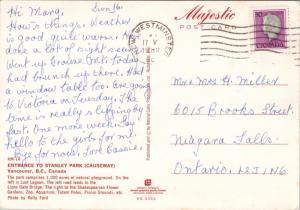 Hi Marg, Sun 16
How's things. Weather
is good quite warm. Have
done a lot of sight seeing
Went up Grouse Mt. Today
had brunch up there. Had
a window table too. Are going
to Victoria on Tuesday. The
time is really is flying by
fast. One more week. Say
hello to the girls for me.
Bye for now, Love Cassie.
ENTRANCE TO STANLEY PARK (CAUSEWAY)
Vancouver, B.C., Canada
The park comprises 1,000 acres of natural playground. On the
left in Lost Lagoon. The left road leads to the
Lions Gate Bridge. The right to the Shakespearian Flower
Gardens, Zoo, Aquarium, Totem Poles, Picnic Grounds, etc.
Photo by Rolly Ford
Majestic
POST CARD
WESTMINSTER
CANADA
Mrs M H. Miller
6015 Brooks Street
Niagara Falls
Ontario. L2J 1N6